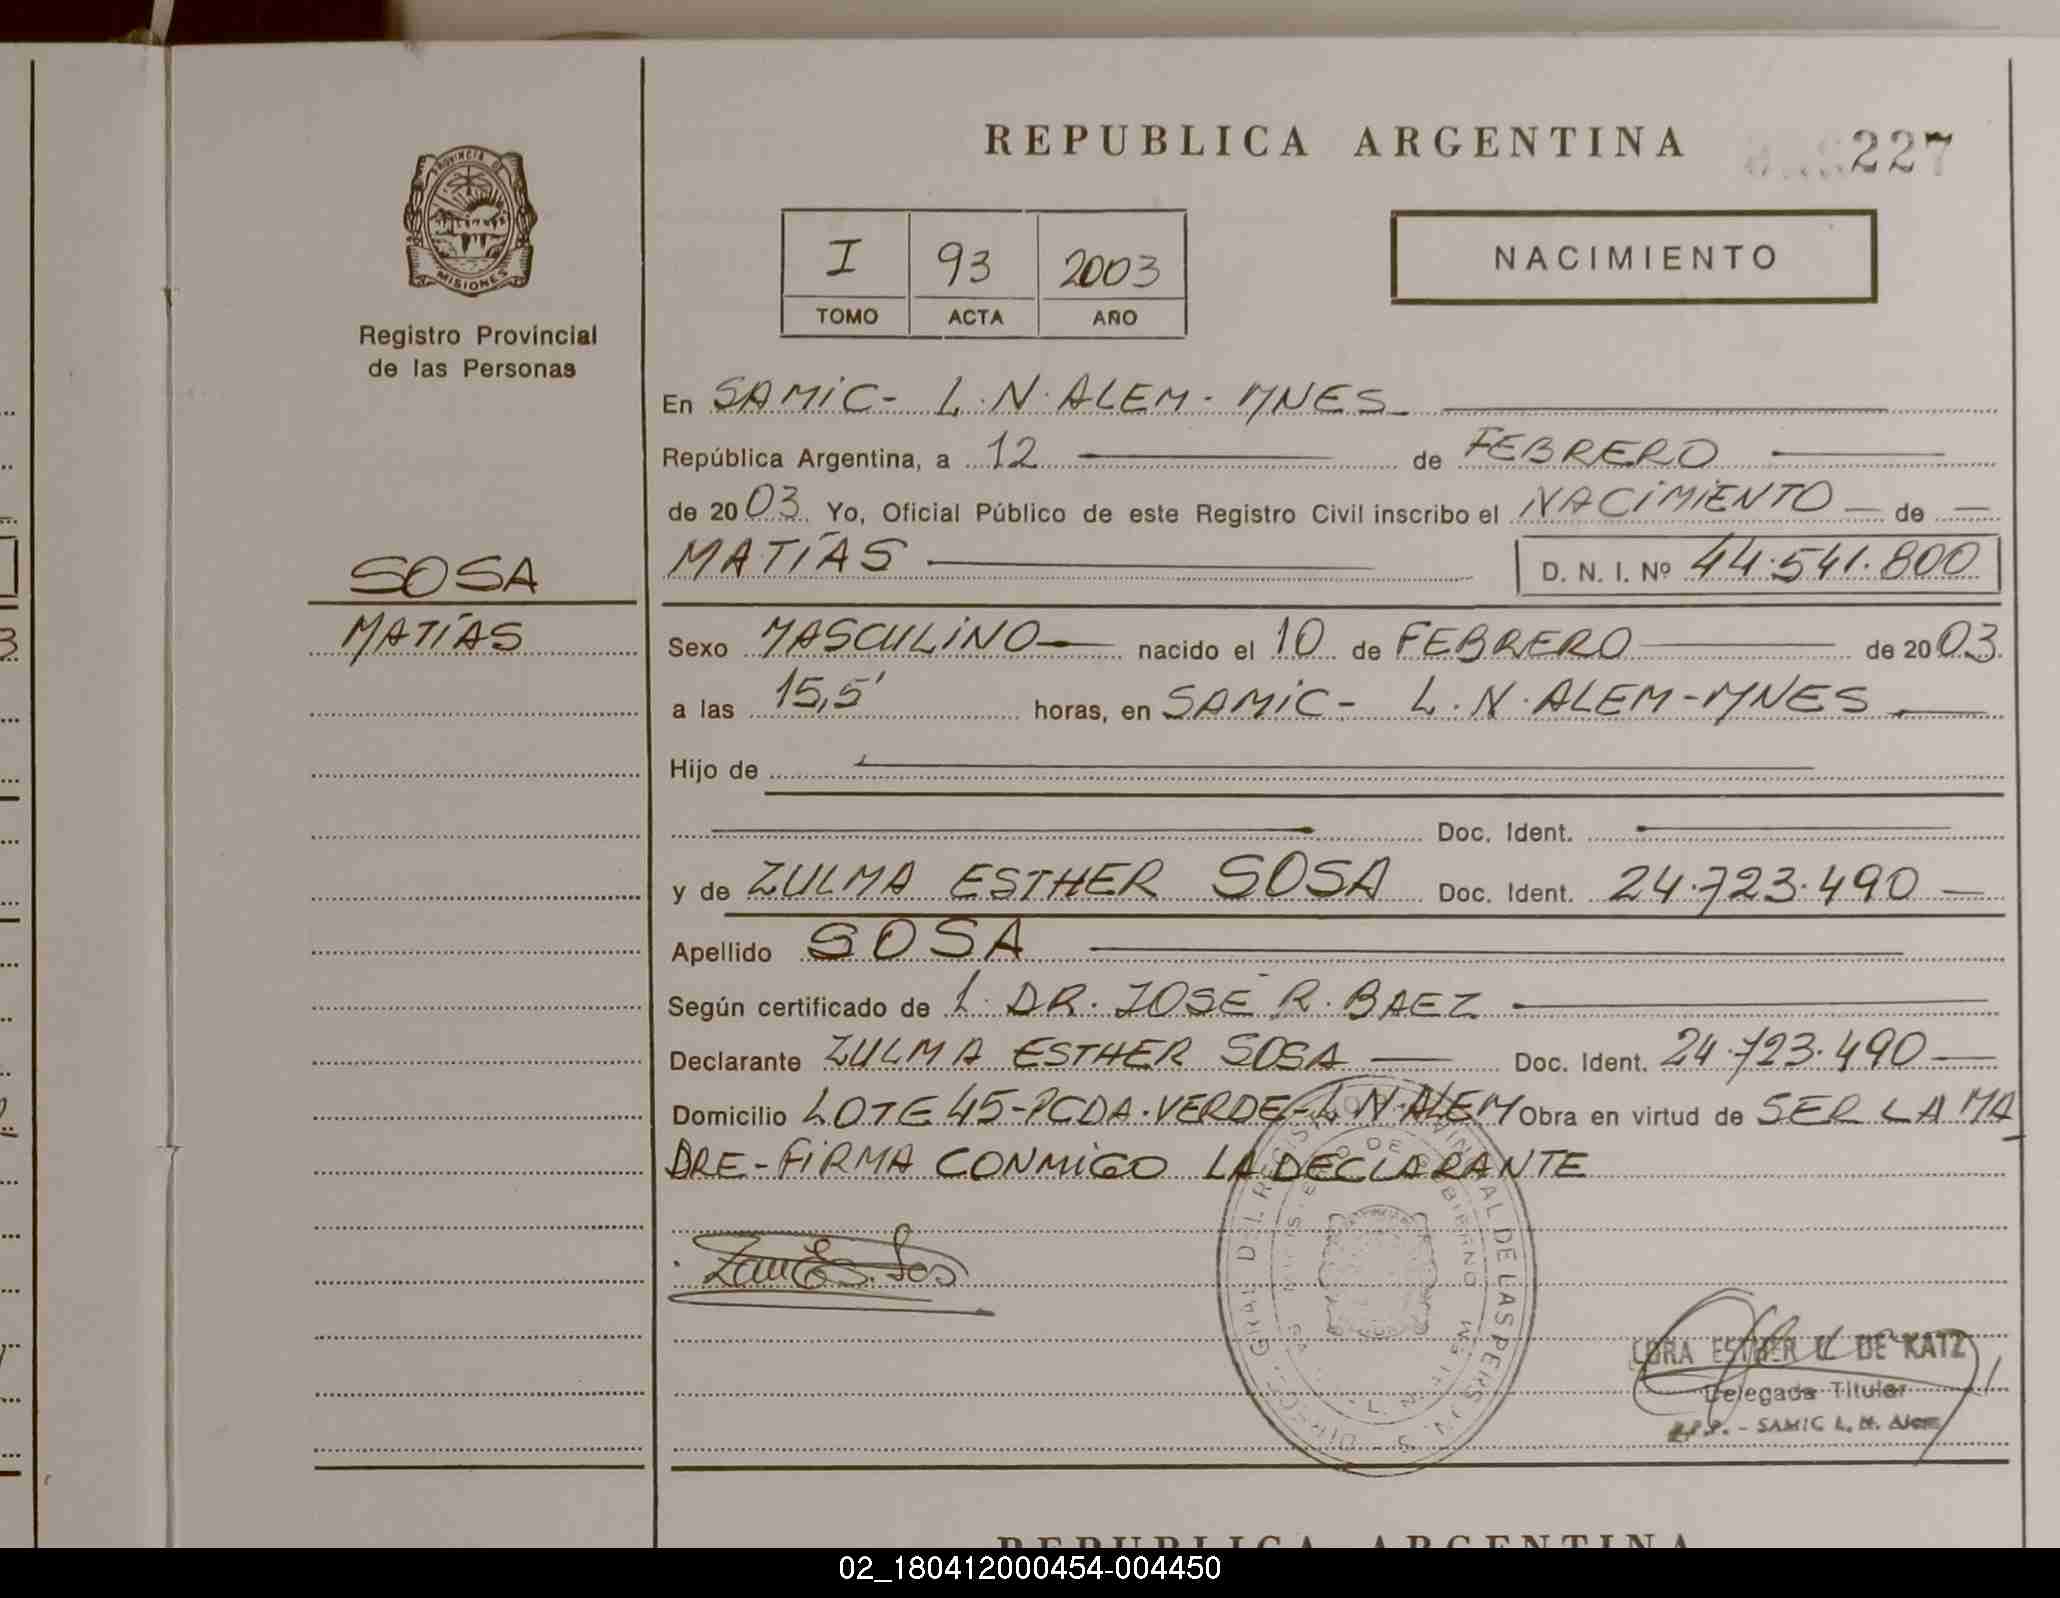 REPUBLICA ARGENTINA
227
PROVINCIA DE
MISIONES
Registro Provincial
de las Personas
I 93 2003
TOMO ACTA AÑO
NACIMIENTO
En SAMIC- L.N.ALEM-MNES
República Argentina, a 12 de FEBRERO
de 2003 Yo, Oficial Público de este Registro Civil inscribo el NACIMIENTO de
MATÍAS D. N. I. Nº 44.541.800
SOSA
MATÍAS
Sexo MASCULINO nacido el 10 de FEBRERO de 2003
a las 15,5' horas, en SAMIC- L.N.ALEM-MNES
Hijo de
Doc. Ident.
y de ZULMA ESTHER SOSA Doc. Ident. 24.723.490
Apellido SOSA
Según certificado de L. DR. JOSÉ R. BAEZ
Declarante ZULMA ESTHER SOSA Doc. Ident. 24.723.490
Domicilio LOTE 45-PCDA.VERDE-L.N.ALEM Obra en virtud de SER LA MA
DRE-FIRMA CONMIGO LA DECLARANTE
ESTHER DE KATZ
Delegada Titular
SAMIC L. N.
REPUBLICA ARGENTINA
02_180412000454-004450